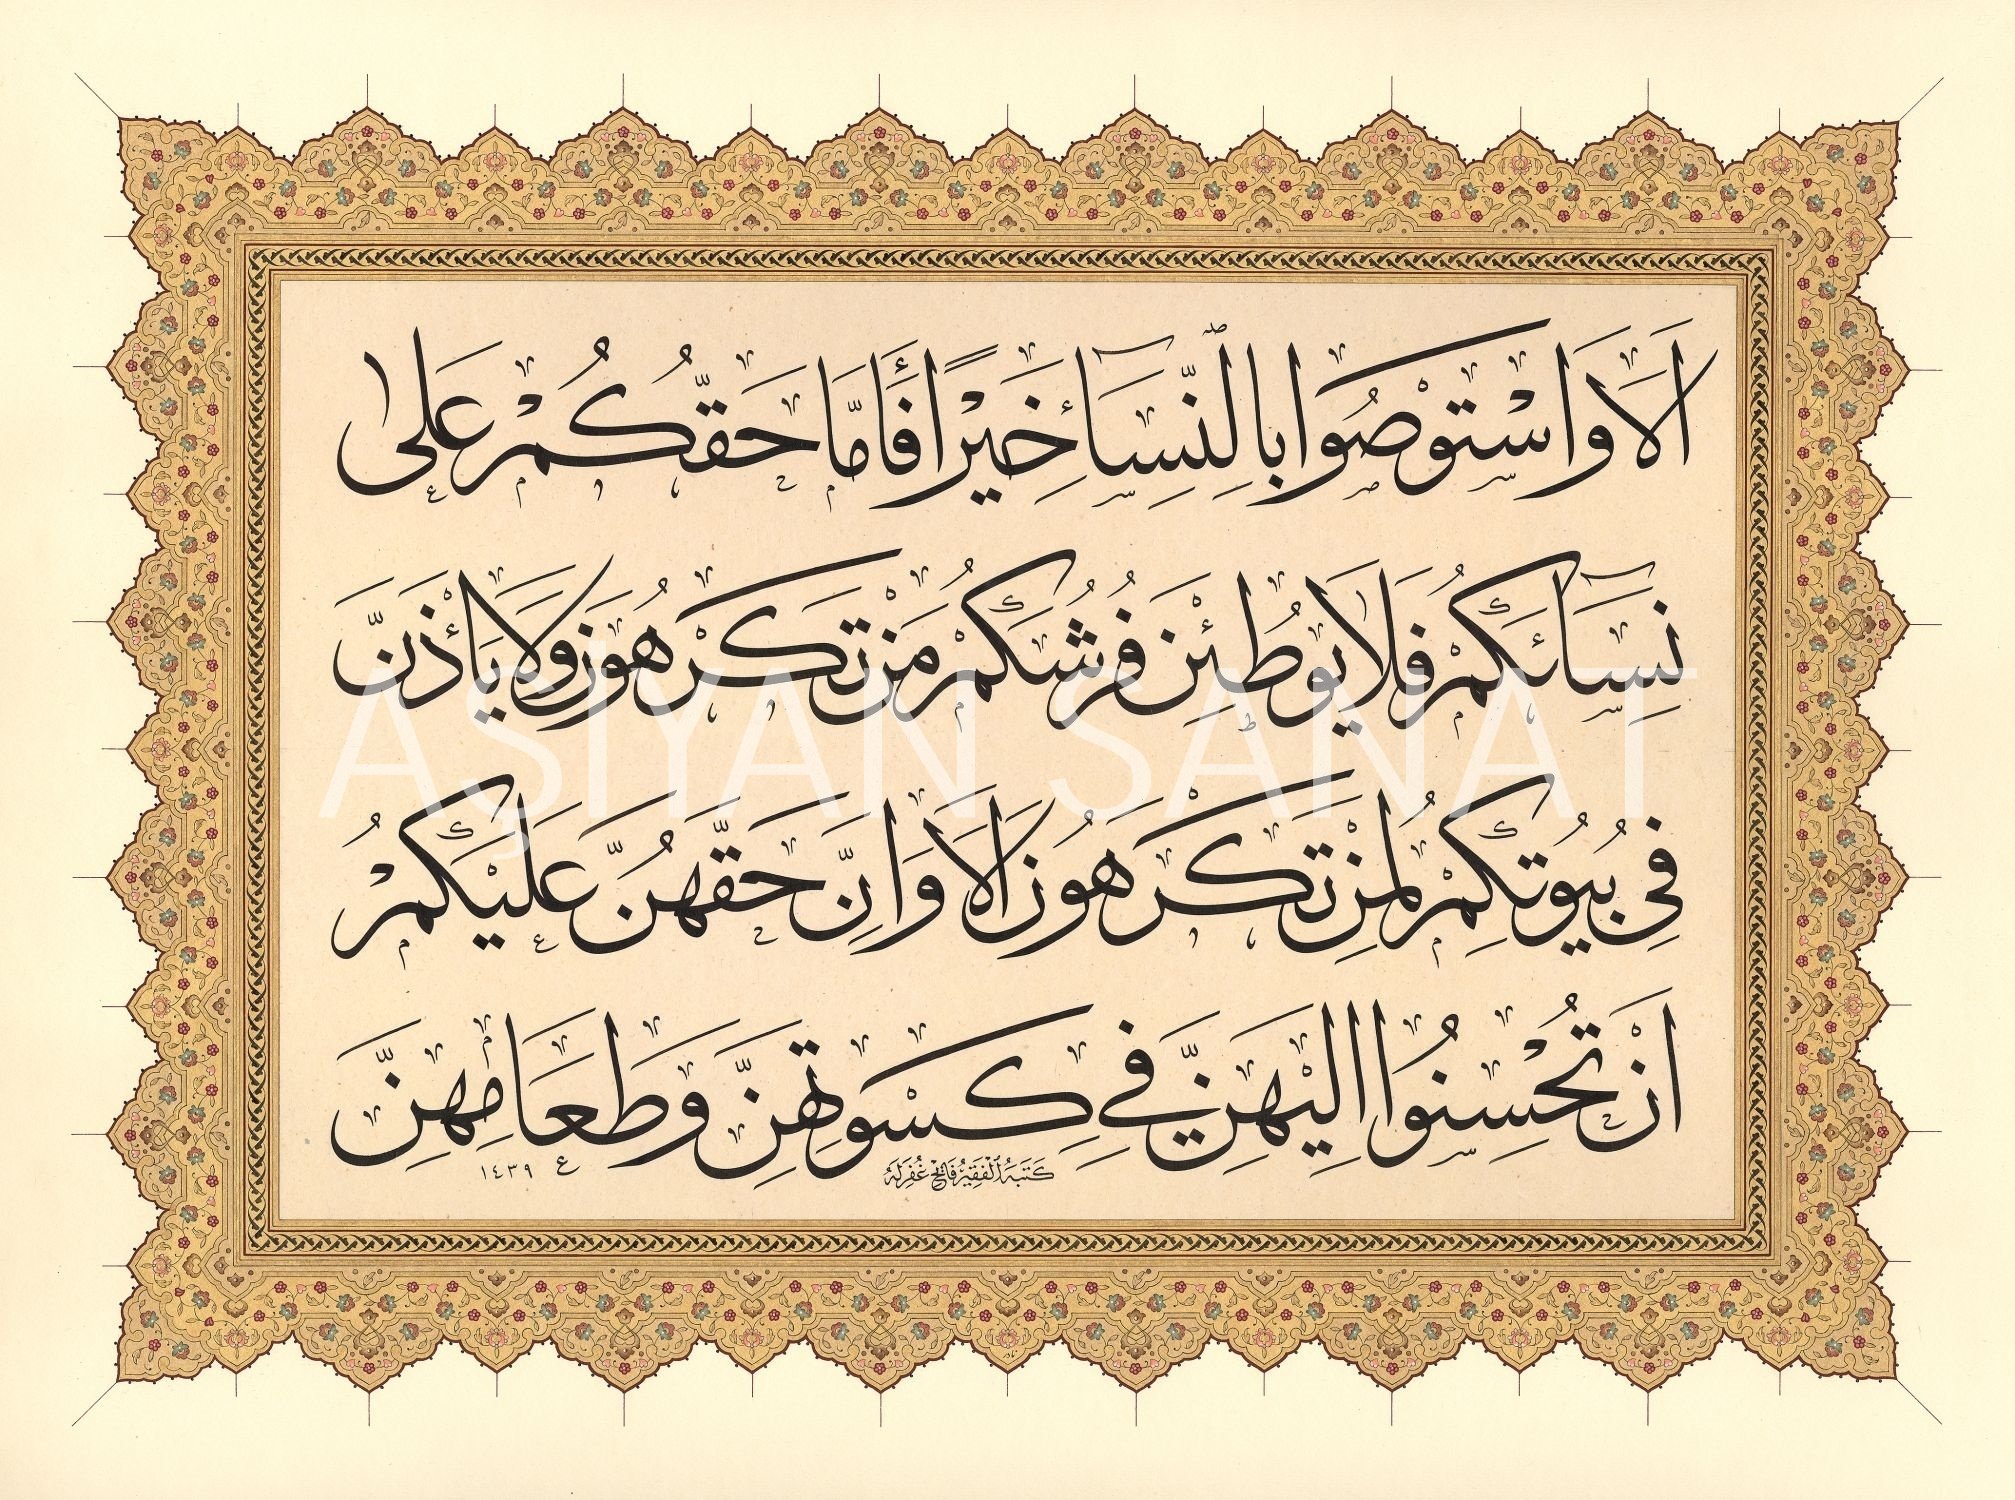 اَلَا وَاسْتَوْصُوا بِالنِّسَآءِ خَيْرًا فَأَمَّا حَقُّكُمْ عَلٰى
نِسَآئِكُمْ فَلَا يُوطِئْنَ فُرُشَكُمْ مَنْ تَكْرَهُونَ وَلَا يَأْذَنَّ
فِي بُيُوتِكُمْ لِمَنْ تَكْرَهُونَ اَلَا وَاِنَّ حَقَّهُنَّ عَلَيْكُمْ
اَنْ تُحْسِنُوا اِلَيْهِنَّ فِي كِسْوَتِهِنَّ وَطَعَامِهِنَّ
كَتَبَهُ الْفَقِيرُ فَاتِح غُفِرَلَهُ ١٤٣٩
AŞİYAN SANAT